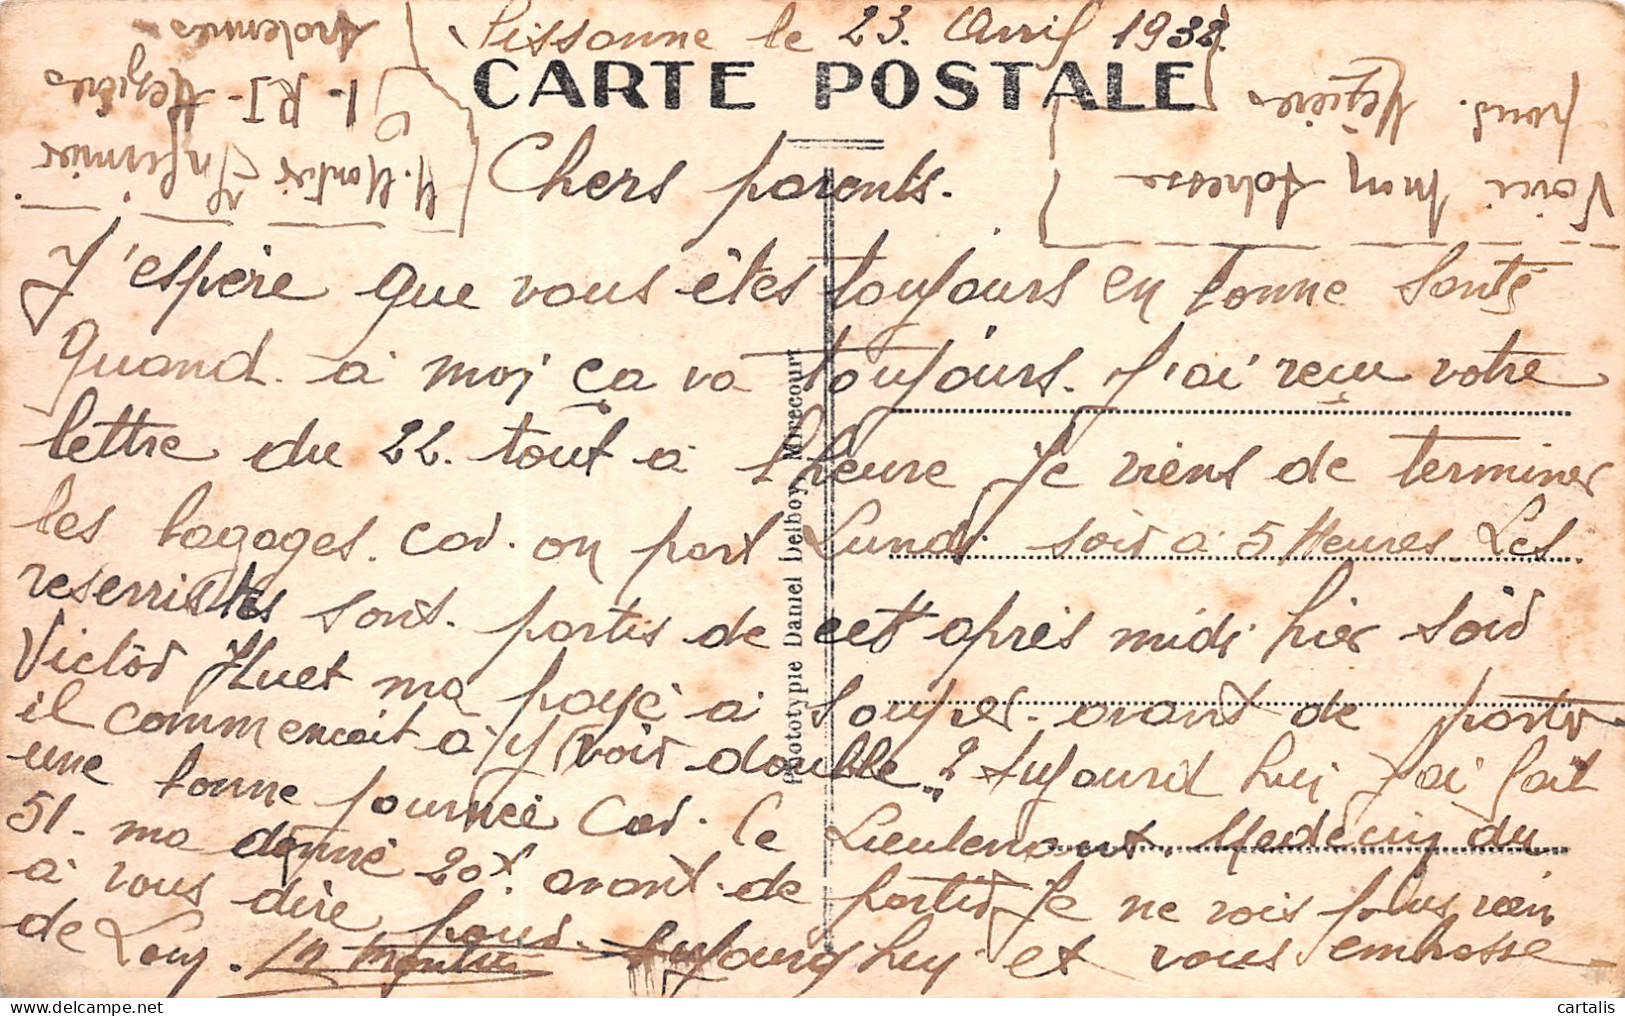 Sissonne le 23. Avril 1938.
CARTE POSTALE
Voici mon Adresse
pour. Mézières
M. Montier Infirmier
RI - Mézières
Ardennes
Chers parents.
J'espère que vous êtes toujours en bonne Santé
Quand. à moi ça va toujours. J'ai reçu votre
lettre du 22. tout à l'heure Je viens de terminer
les bagages. Car. on part Lundi soir à 5 Heures. Les
reservistes sont. partis de cett après midi hier soir
Victor Huet ma payé à souper. avant de partir
il commencait à y voir double? Aujourd hui j'ai fait
une bonne journée Car. le Lieutenant. Medecin du
51. ma donné 20f. avant. de partir Je ne vois plus rien
à vous dire pour. Aujourg huy et vous embrasse
de Loin.
Phototypie Daniel Delboy, Mirecourt
cartalis